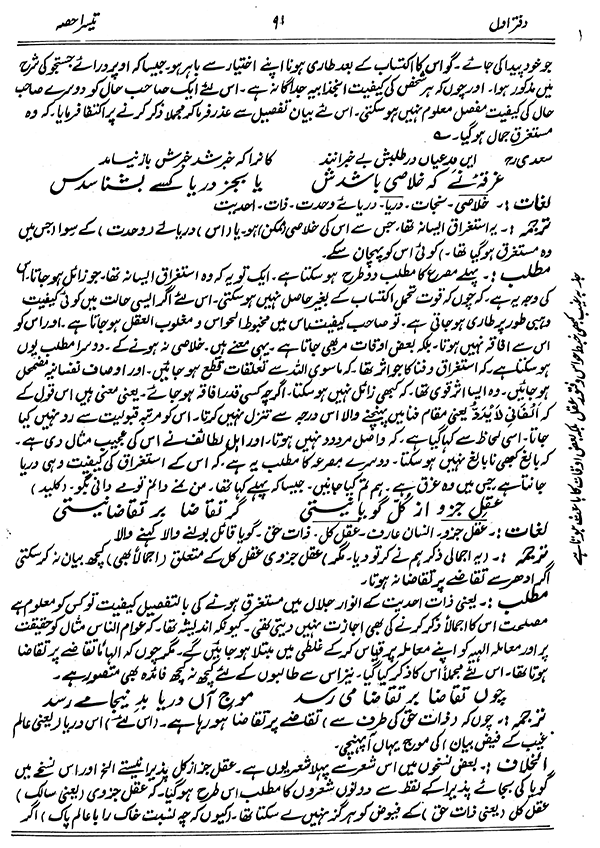 دفتر اول
۹۱
تیسرا حصہ
جو خود پیدا کی جائے۔ گو اس کا اکتساب کے بعد طاری ہونا اپنے اختیار سے باہر ہو۔ جیسا کہ اوپر ورائے جستجو کی شرح
میں مذکور ہوا۔ اور چوں کہ ہر شخص کی کیفیت انجذابیہ جداگانہ ہے۔ اس لئے ایک صاحب حال کو دوسرے صاحب
حال کی کیفیت مفصل معلوم نہیں ہو سکتی۔ اس لئے بیان تفصیل سے عذر فرما کر مجملاً ذکر کرنے پر اکتفا فرمایا۔ کہ وہ
مستغرق جمال ہو گیا۔
سعدیؒ ایں مدعیاں در طلبش بے خبرانند کانرا کہ خبر شد خبرش باز نیامد
غرقۂ نے کہ خلاصی باشدش یا بجز دریا کسے بشناسدش
لغات :۔ خلاصی۔ نجات۔ دریا۔ دریائے وحدت۔ ذات۔ احدیت
ترجمہ :۔ یہ استغراق ایسا نہ تھا۔ جس سے اس کی خلاصی (ممکن) ہو۔ یا (اس) دریائے (وحدت) کے سوا (جس میں
وہ مستغرق ہو گیا تھا۔) کوئی اس کو پہچان سکے۔
مطلب :۔ پہلے مصرع کا مطلب دو طرح ہو سکتا ہے۔ ایک تو یہ کہ وہ استغراق ایسا نہ تھا۔ جو زائل ہو جاتا۔ اس
کی وجہ یہ ہے۔ کہ چوں کہ قوت تحمل اکتساب کے بغیر حاصل نہیں ہو سکتی۔ اس لئے اگر ایسی حالت میں کوئی کیفیت
وہبی طور پر طاری ہو جاتی ہے۔ تو صاحب کیفیت اس میں مخبوط الحواس و مغلوب العقل ہو جاتا ہے۔ اور اس کو
اس سے افاقہ نہیں ہوتا۔ بلکہ بعض اوقات مر بھی جاتا ہے۔ یہی معنے ہیں۔ خلاصی نہ ہونے کے۔ دوسرا مطلب یوں
ہو سکتا ہے کہ استغراق و فنا کا جو اثر تھا۔ کہ ماسوی اللہ سے تعلقات قطع ہو جائیں۔ اور اوصاف نفسانیہ مضمحل
ہو جائیں۔ وہ ایسا اثر قوی تھا۔ کہ کبھی زائل نہیں ہو سکتا۔ اگرچہ کسی قدر افاقہ ہو جائے۔ یعنی معنی ہیں اس قول کے
کہ اَلْفَانِیْ لَا یُرَدُّ یعنی مقام فنا میں پہنچنے والا اس درجہ سے تنزل نہیں کرتا۔ اس کو مرتبہ قبولیت سے رد نہیں کیا
جاتا۔ اسی لحاظ سے کہا گیا ہے۔ کہ واصل مردود نہیں ہوتا۔ اور اہل لطائف نے اس کی عجیب مثال دی ہے۔
کہ بالغ کبھی نابالغ نہیں ہو سکتا۔ دوسرے مصرعہ کا مطلب یہ ہے۔ کہ اس کے استغراق کی کیفیت وہی دریا
جانتا ہے جس میں وہ غرق ہے۔ ہم تم کیا جانیں۔ جیسا کہ پہلے کہا تھا۔ من نمے دانم تو مے دانی بگو۔ (کلید)
عقل جزو از کل گویا نیستی گر تقاضا بر تقاضا نیستی
لغات :۔ عقل جزو۔ انسان عارف۔ عقل کل۔ ذات حق۔ گویا قائل بولنے والا کہنے والا
ترجمہ :۔ (یہ اجمالی ذکر ہم نے کر تو دیا۔ مگر) عقل جزوی عقل کل کے متعلق (اجمالاً بھی) کچھ بیان نہ کر سکتی
اگر ادھر سے تقاضے پر تقاضا نہ ہوتا۔
مطلب :۔ یعنی ذات احدیت کے انوار جلال میں مستغرق ہونے کی بالتفصیل کیفیت تو کس کو معلوم ہے
مصلحت اس کا اجمالاً ذکر کرنے کی بھی اجازت نہیں دیتی تھی۔ کیونکہ اندیشہ تھا۔ کہ عوام الناس مثال کو حقیقت
پر اور معاملہ الٰہیہ کو اپنے معاملہ پر قیاس کر کے غلطی میں مبتلا ہو جائیں گے۔ مگر چوں کہ الہاماً تقاضے پر تقاضا
ہوتا تھا۔ اس لئے مجملاً اس کا ذکر کیا گیا۔ نیز اس سے طالبوں کے لئے کچھ نہ کچھ فائدہ بھی متصور ہے۔
چوں تقاضا بر تقاضا می رسد موج آں دریا بدینجا مے رسد
ترجمہ :۔ چوں کہ (ذات حق کی طرف سے) تقاضے پر تقاضا ہو رہا ہے۔ (اس لئے) اس دریا (یعنی عالم
غیب کے فیض بیان) کی موج یہاں آ پہنچی۔
الخلاف :۔ بعض نسخوں میں اس شعر سے پہلا شعر یوں ہے۔ عقل جزاز کل پذیرا نیستے الخ اور اس نسخے میں
گویا کی بجائے پذیرا کے لفظ سے دونوں شعروں کا مطلب اس طرح ہو گیا۔ کہ عقل جزوی (یعنی سالک)
عقل کل (یعنی ذات حق) کے فیوض کو ہرگز نہیں لے سکتا تھا۔ (کیوں کہ چہ نسبت خاک را با عالم پاک) اگر